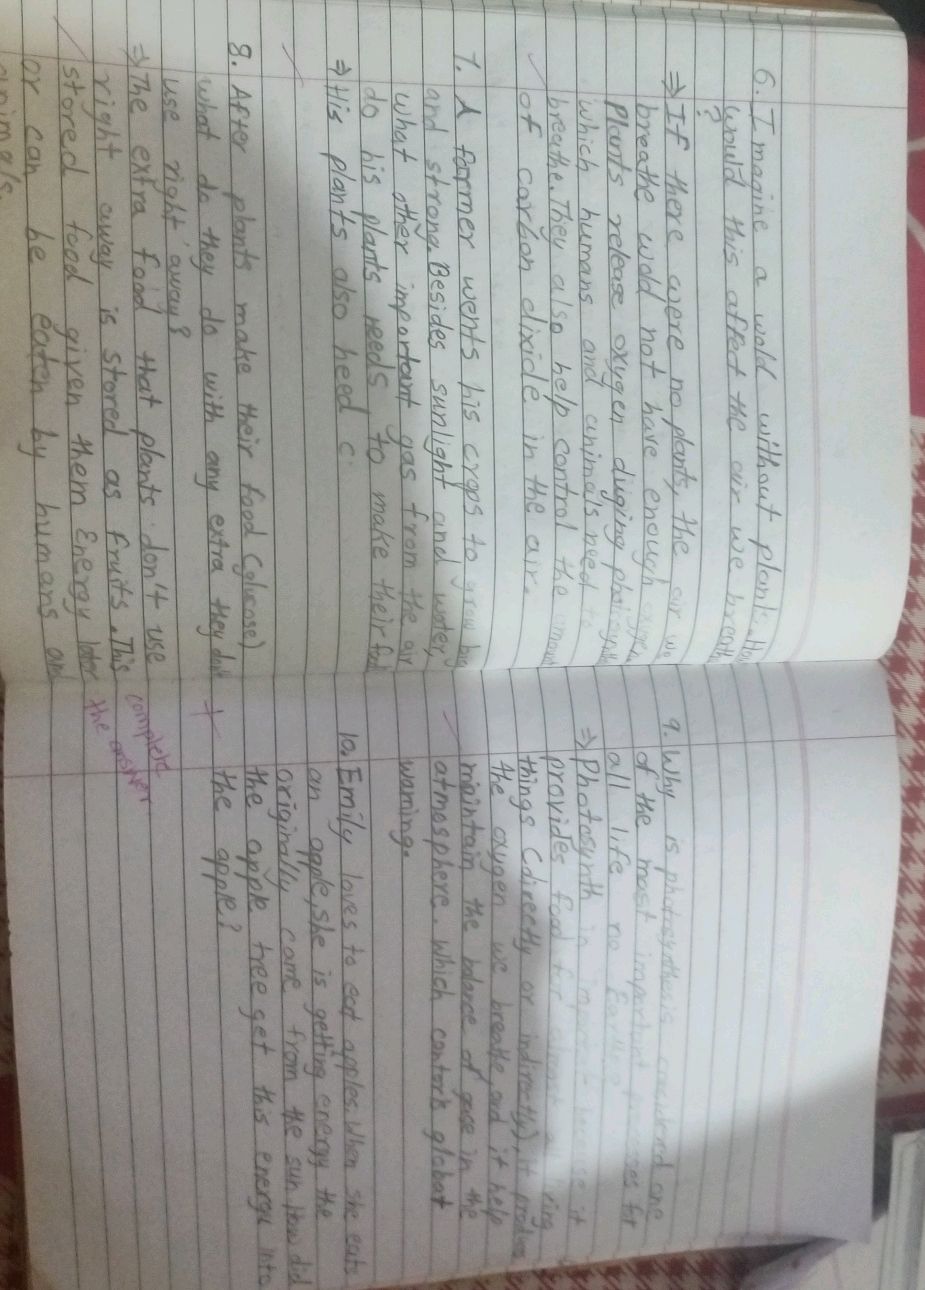 6. Imagine a wold without plants. How
would this affect the air we breath
?
⇒ If there were no plants, the air we
breathe wold not have enough oxygen.
Plants release oxygen duging
which humans and animals need to
breathe. They also help control the amount
of carbon dixide in the air.
7. A farmer wents his crops to grow big
and strong. Besides sunlight and water,
what other important gas from the air
do his plants needs to make their food
⇒ His plants also need c
8. After plants make their food (glucose)
what do they do with any extra they don't
use right away?
⇒ The extra food that plants don't use
right away is stored as fruits. This
stored food given them Energy later
or can be eaten by humans and
animals.
9. Why is photosynthesis considerd one
of the most important processes for
all life no Earth?
⇒ Photosynth in important because it
provides food for almost all living
things (directly or indirectly), It produces
the oxygen we breathe and it help
maintain the balance of gase in the
atmosphere. which contorls global
waming.
10. Emily loves to eat apples. When she eats
an apple, she is getting energy the
originally came from the sun. How did
the apple tree get this energy into
the apple?
complete
the answer